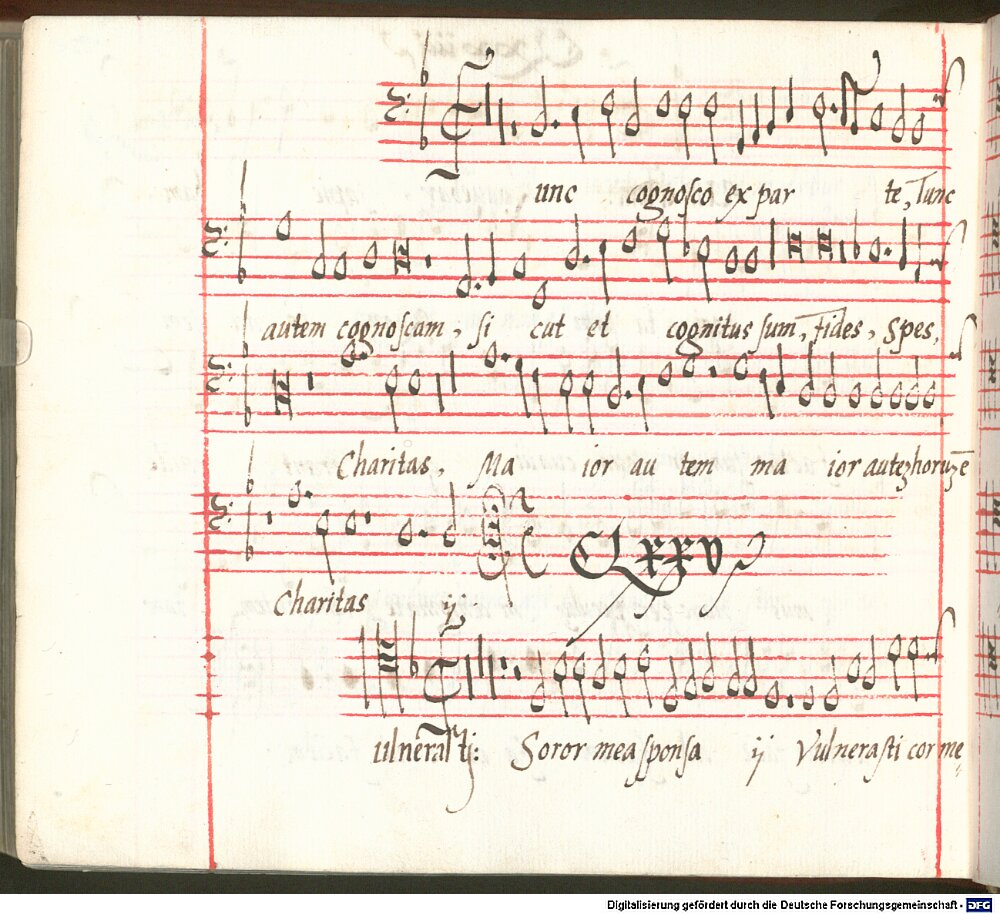 unc cognosco ex par te, Tunc
autem cognoscam, si cut et cognitus sum, fides, Spes,
Charitas, Ma ior au tem ma ior autez horuz ē
Charitas ij
CLxxv
ulnerasti: Soror mea sponsa ij Vulnerasti cor me
Digitalisierung gefördert durch die Deutsche Forschungsgemeinschaft - DFG